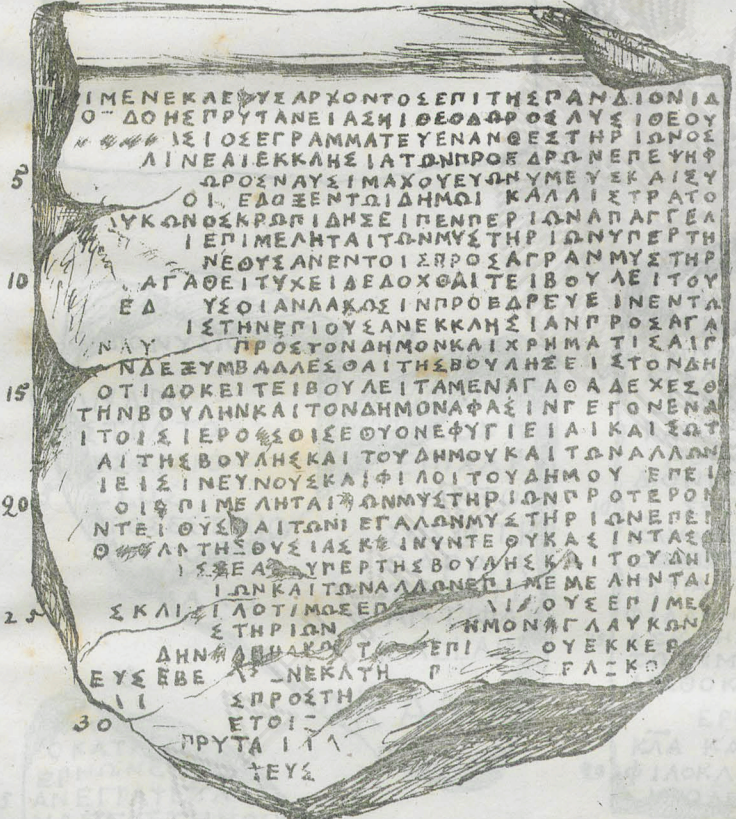 ΙΜΕΝΕΚΛΕΥΣΑΡΧΟΝΤΟΣΕΠΙΤΗΣΠΑΝΔΙΟΝΙΔ
Ο ΔΟΗΣΠΡΥΤΑΝΕΙΑΣΗΙΘΕΟΔΩΡΟΣΛΥΣΙΘΕΟΥ
ΙΣΙΟΣΕΓΡΑΜΜΑΤΕΥΕΝΑΝΘΕΣΤΗΡΙΩΝΟΣ
ΛΙΝΕΑΙΕΚΚΛΗΣΙΑΤΩΝΠΡΟΕΔΡΩΝΕΠΕΨΗΦ
5 ΩΡΟΣΝΑΥΣΙΜΑΧΟΥΕΥΩΝΥΜΕΥΣΚΑΙΣΥ
ΟΙ ΕΔΟΞΕΝΤΩΙΔΗΜΩΙ ΚΑΛΛΙΣΤΡΑΤΟ
ΛΥΚΩΝΟΣΚΡΩΠΙΔΗΣΕΙΠΕΝΠΕΡΙΩΝΑΠΑΓΓΕΛ
ΙΕΠΙΜΕΛΗΤΑΙΤΩΝΜΥΣΤΗΡΙΩΝΥΠΕΡΤΗ
ΝΕΘΥΣΑΝΕΝΤΟΙΣΠΡΟΣΑΓΡΑΝΜΥΣΤΗΡ
10 ΑΓΑΘΕΙΤΥΧΕΙΔΕΔΟΧΘΑΙΤΕΙΒΟΥΛΕΙΤΟΥ
ΕΔ ΥΣΟΙΑΝΛΑΧΩΣΙΝΠΡΟΕΔΡΕΥΕΙΝΕΝΤΩ
ΙΣΤΗΝΕΠΙΟΥΣΑΝΕΚΚΛΗΣΙΑΝΠΡΟΣΑΓΑ
ΝΑΥ ΠΡΟΣΤΟΝΔΗΜΟΝΚΑΙΧΡΗΜΑΤΙΣΑΙΓ
ΝΔΕΞΥΜΒΑΛΛΕΣΘΑΙΤΗΣΒΟΥΛΗΣΕΙΣΤΟΝΔΗ
15 ΟΤΙΔΟΚΕΙΤΕΙΒΟΥΛΕΙΤΑΜΕΝΑΓΑΘΑΔΕΧΕΣΘ
ΤΗΝΒΟΥΛΗΝΚΑΙΤΟΝΔΗΜΟΝΑΦΑΣΙΝΓΕΓΟΝΕΝΑ
ΙΤΟΙΣΙΕΡΟ ΣΟΙΣΕΘΥΟΝΕΦΥΓΙΕΙΑΙΚΑΙΣΩΤ
ΑΙΤΗΣΒΟΥΛΗΣΚΑΙΤΟΥΔΗΜΟΥΚΑΙΤΩΝΑΛΛΩΝ
ΙΕΙΣΙΝΕΥΝΟΥΣΚΑΙΦΙΛΟΙΤΟΥΔΗΜΟΥ ΕΠΕΙ
20 ΟΙ ΠΙΜΕΛΗΤΑΙ ΩΝΜΥΣΤΗΡΙΩΝΠΡΟΤΕΡΟΝ
ΝΤΕΙΘΥΣ ΑΙΤΩΝΙΕΓΑΛΩΝΜΥΣΤΗΡΙΩΝΕΠΕΓ
ΤΗΣΘΥΣΙΑΣΚ ΙΝΥΝΤΕΘΥΚΑΣΙΝΤΑΣ
ΥΠΕΡΤΗΣΒΟΥΛΗΣΚΑΙΤΟΥΔΗΙ
ΙΩΝΚΑΙΤΩΝΑΛΛΩΝΕΠΙΜΕΜΕΛΗΝΤΑΙ
25 ΣΚΛΙΣΙΛΟΤΙΜΩΣΕΠ ΟΥΣΕΠΙΜΕΣ
ΣΤΗΡΙΩΝ ΗΜΟΝΑΓΛΑΥΚΩΝ
ΔΗΝ ΕΠΙ ΟΥΕΚΚΕΡ
ΕΥΣΕΒΕ ΝΕΚΛΤΗ Π
ΙΙ ΣΠΡΟΣΤΗ
30 ΕΤΟΙ
ΠΡΥΤΑ
ΤΕΥΣ